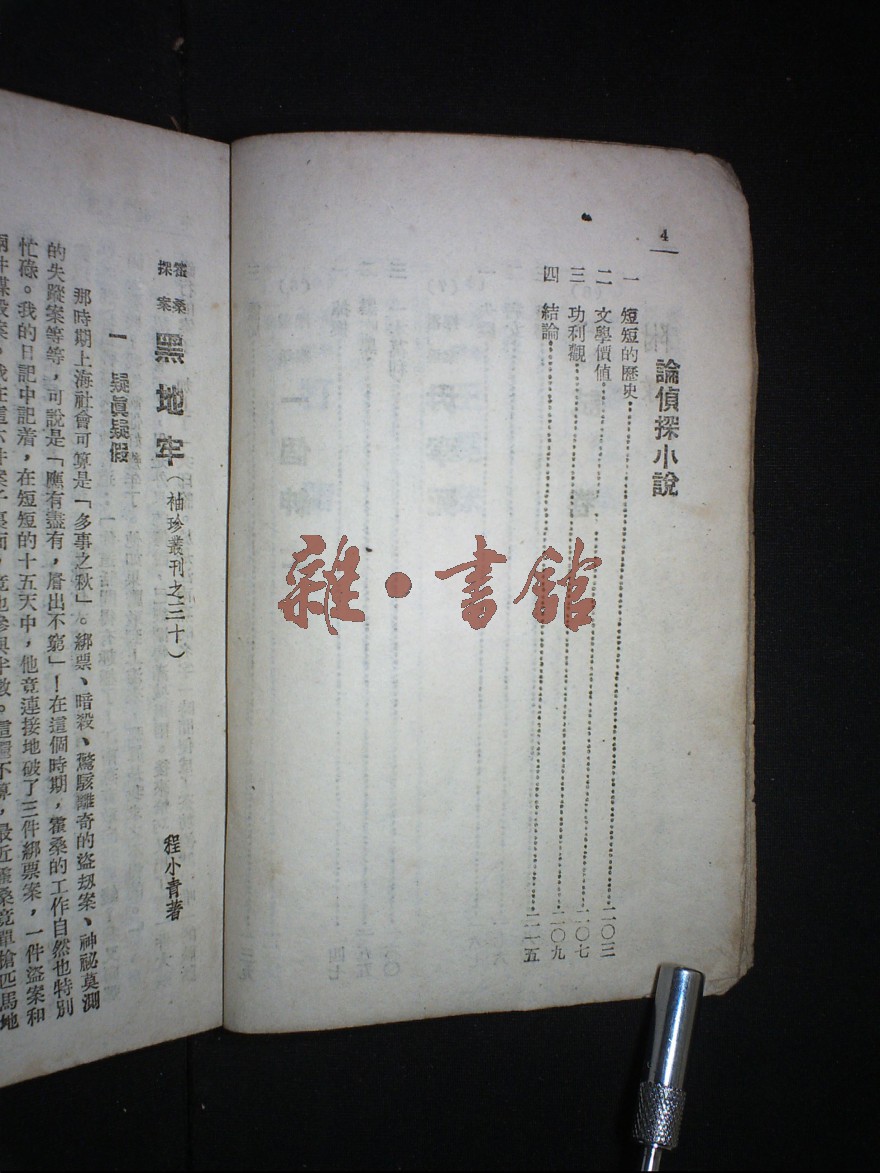 4
論偵探小說
一 短短的歷史……二〇三
二 文學價值……二〇七
三 功利觀……二〇九
四 結論……二一五
雜·書館
霍桑探案 黑地牢（袖珍叢刊之三十）
程小青著
一 疑真疑假
那時期上海社會可算是「多事之秋」。綁票、暗殺、驚駭離奇的盜刼案、神祕莫測
的失蹤案等等，可說是「應有盡有，層出不窮」！在這個時期，霍桑的工作自然也特別
忙碌。我的日記中記着，在短短的十五天中，他竟連接地破了三件綁票案，一件盜案和
兩件謀殺案。我在這六件案子裏面，竟也參與半數。這還不算，最近霍桑竟單槍匹馬地